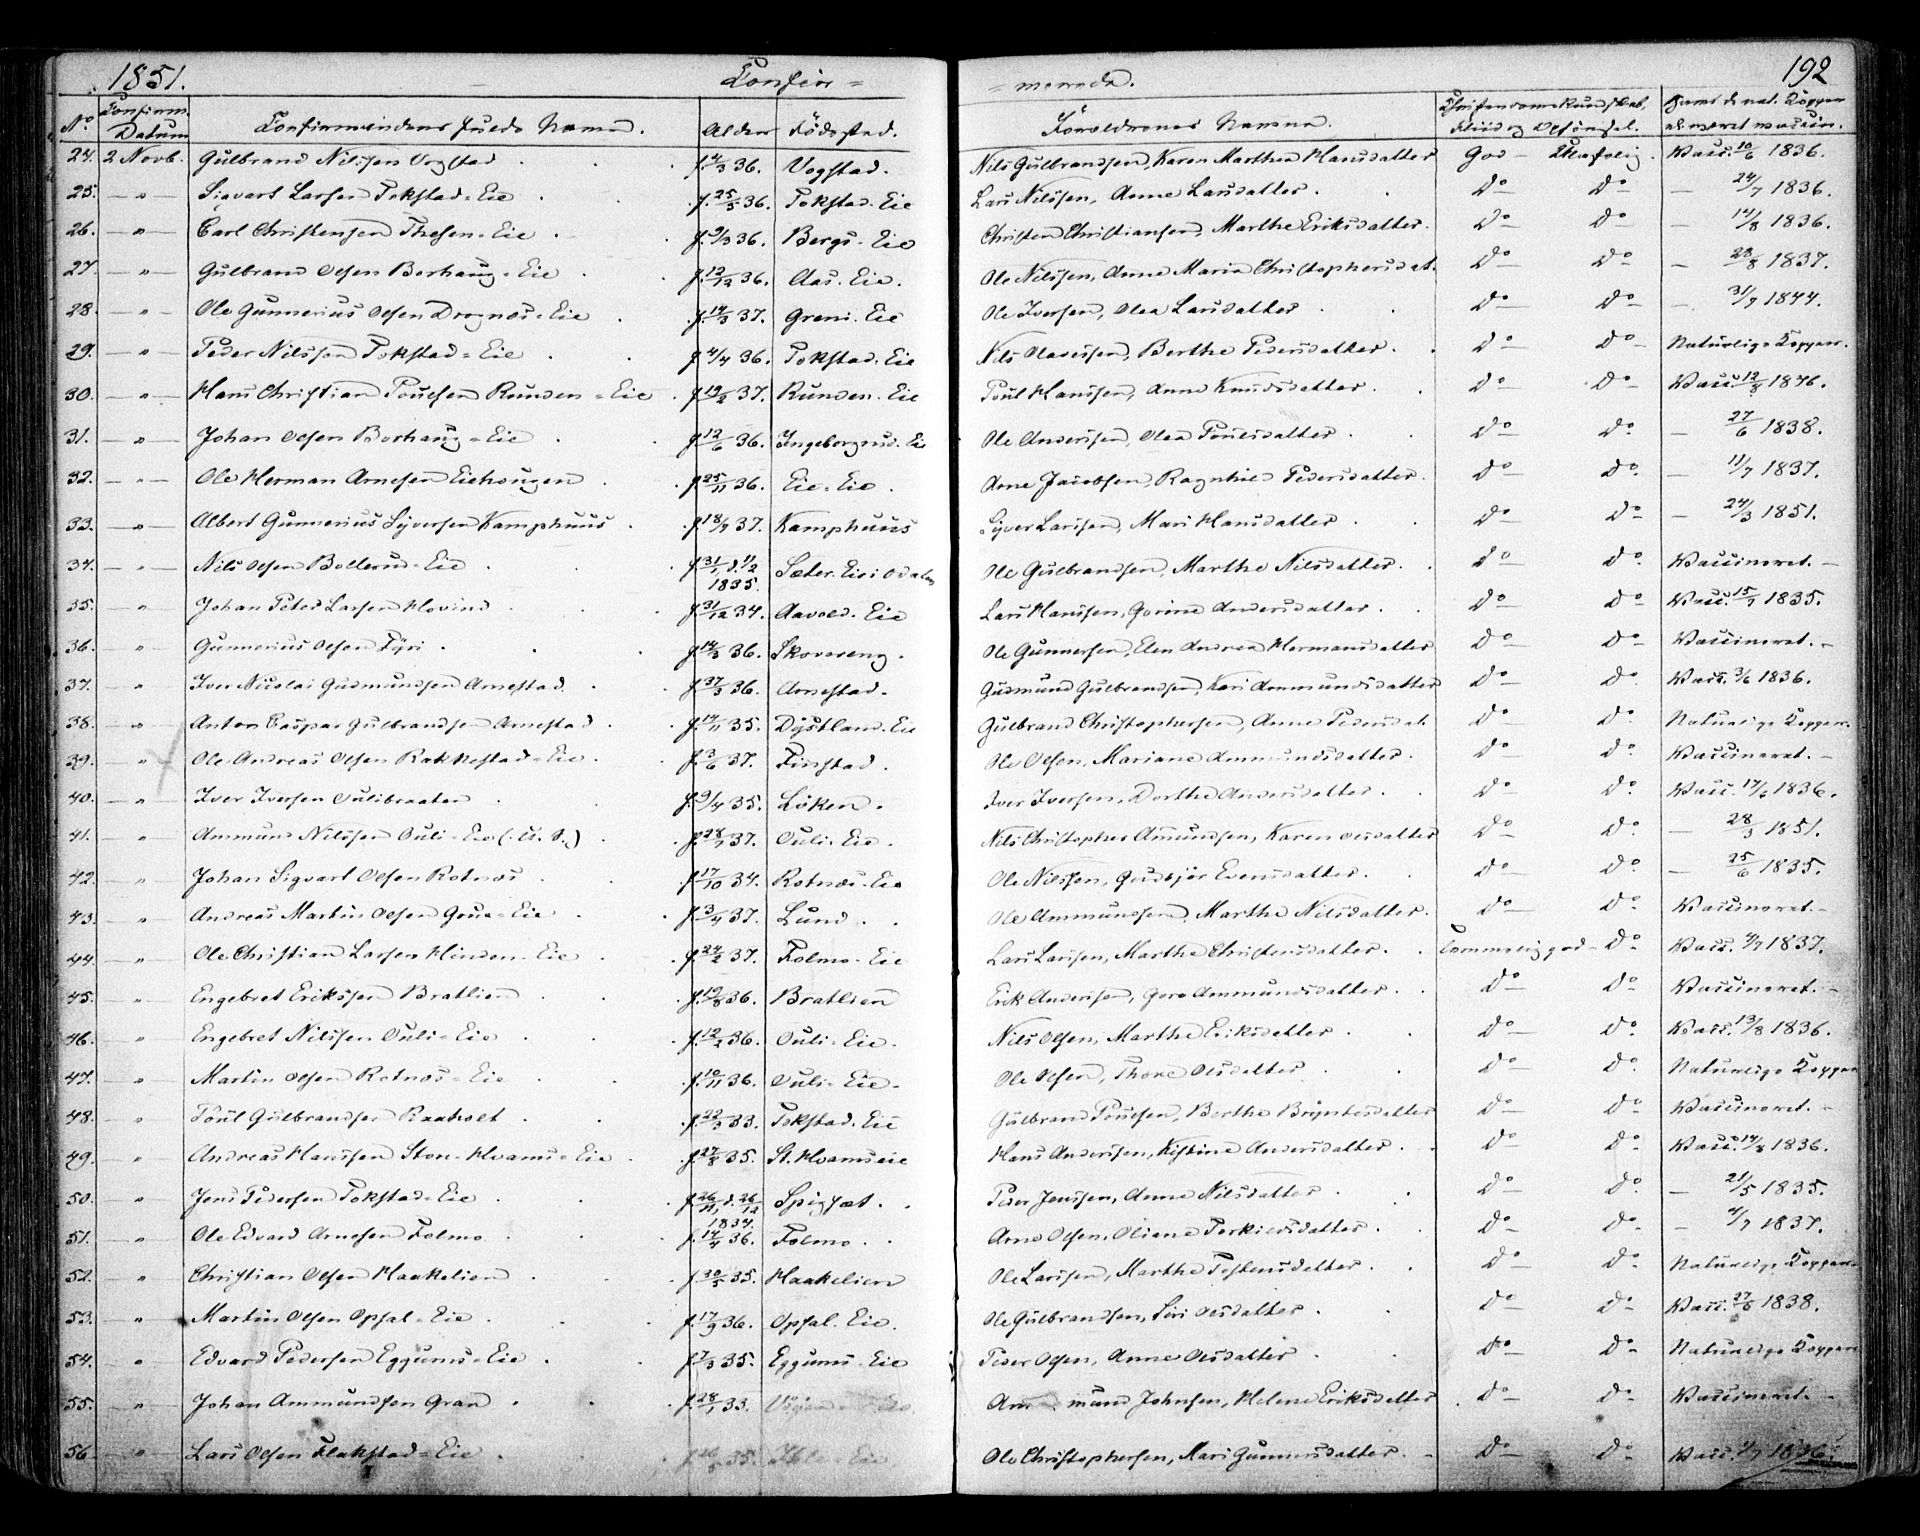 1851. Confir = = merede. 192
No Confirm. Datum Confirmandens fulde Navn. Alder Födested. Forældrenes Navne. Christendoms Kundskab, Flid og Opförsel. Havt de nat. Kopper el. været vaccin.
24. 2 Novb. Gulbrand Nilssen Vogstad f. 4/3 36. Vogstad. Nils Gulbrandsen, Karen Marthea Hansdatter God - Skikkelig. Vacc. 10/6 1836.
25. — " — Sigvart Larsen Tokstad-Eie f. 25/5 36. Tokstad-Eie Lars Nilssen, Anne Larsdatter. Do Do — 24/7 1836.
26. — " — Carl Christensen Thesen-Eie f. 9/3 36. Bergs-Eie Christen Christiansen, Marthe Eriksdatter. Do Do — 14/8 1836.
27 — " — Gulbrand Olsen Borhaug-Eie f. 12/12 36. Aas-Eie. Ole Nilssen, Anne Maria Christophersdat. Do Do — 28/8 1837.
28 — " — Ole Gunnerius Olsen Drognes-Eie f. 14/3 37. Greni-Eie Ole Iversen, Olea Larsdatter Do Do — 31/7 1844.
29. — " — Peder Nilssen Tokstad-Eie f. 4/4 36. Tokstad-Eie Nils Olavessen, Berthe Pedersdatter. Do Do Naturlige Kopper.
30. — " — Hans Christian Poulsen Runden-Eie f. 12/2 37. Runden-Eie Poul Hanssen, Anne Knudsdatter Do Do Vacc. 12/8 1846.
31. — " — Johan Olsen Borhaug-Eie f. 12/6 36. Ingeborgrud-Eie Ole Anderssen, Olea Poulsdatter Do Do — 27/6 1838.
32. — " — Ole Herman Arnesen Eiehougen f. 25/11 36. Eie-Eie. Arne Jacobsen, Ragnhild Pedersdatter. Do Do — 11/7 1837.
33. — " — Albert Gunnerius Syversen Kamphuus f. 18/7 37. Kamphuus Syver Larssen, Mari Hansdatter Do Do — 24/3 1851.
34. — " — Nils Olsen Bollerud-Eie f. 31/1 d. 11/2 1835. Sæter-Eie i Odalen Ole Gulbrandsen, Marthe Nilsdatter. Do Do Vaccineret. —
35. — " — Johan Peter Larsen Hovind f. 31/12 34. Aavold-Eie Lars Hanssen, Gorine Andersdatter Do Do Vacc. 15/7 1835.
36. — " — Gunnerius Olsen Fyri f. 14/3 36. Skovereng. Ole Gunnersen, Elen Andrea Hermansdatter Do Do Vaccineret. —
37. — " — Iver Nicolai Gudmundsen Arnestad f. 37/3 36. Arnestad. Gudmund Gulbrandsen, Kari Ammundsdatter Do Do Vacc. 3/6 1836.
38. — " — Anton Caspar Gulbrandsen Arnestad f. 14/11 35. Dystland-Eie Gulbrand Christophersen, Anne Pedersdat. Do Do Naturlige Kopper.
39. — " — Ole Andreas Olsen Rakkestad-Eie f. 3/6 37. Finstad. Ole Olsen, Mariane Ammundsdatter. Do Do Vaccineret. —
40. — " — Iver Iversen Oulibraaten f. 9/4 35. Löken. Iver Iversen, Dorthe Andersdatter Do Do Vacc. 17/6 1836.
41. — " — Ammund Nilssen Ouli-Eie f. 28/7 37. Ouli-Eie. Nils Christopher Amundsen, Karen Olsdatter Do Do — 28/3 1851.
42. — " — Johan Sigvart Olsen Rotnes f. 17/10 34. Rotnes-Eie Ole Nilssen, Gudbjör Evensdatter. Do Do — 25/6 1835.
43. — " — Andreas Martin Olsen Goue-Eie f. 3/4 37. Lund. Ole Ammundsen, Marthe Nilsdatter. Do Do Vaccineret. —
44. — " — Ole Christian Larsen Hinden-Eie f. 24/2 37. Folmo-Eie Lars Larssen, Marthe Christensdatter Temmelig god Do Vacc. 4/7 1837.
45. — " — Engebret Erikssen Bratlien f. 19/8 36. Bratlien Erik Anderssen, Goro Ammundsdatter Do Do Vaccineret. —
46. — " — Engebret Nilssen Ouli-Eie f. 12/2 36. Ouli-Eie. Nils Olsen, Marthe Eriksdatter Do Do Vacc. 13/8 1836.
47. — " — Martin Olsen Rotnes-Eie f. 10/11 36. Ouli-Eie. Ole Olsen, Thore Olsdatter Do Do Naturlige Kopper
48. — " — Poul Gulbrandsen Raaholt f. 22/3 33. Tokstad-Eie Gulbrand Poulsen, Berthe Bryntesdatter Do Do Vaccineret. —
49. — " — Andreas Hanssen Store-Hvams-Eie f. 27/8 35. St. Hvamseie Hans Anderssen, Kistine Andersdatter Do Do Vacc. 14/8 1836.
50. — " — Jens Pedersen Tokstad-Eie f. 26/11 d. 26/12 1834. Spigset. Peder Jenssen, Anne Nilsdatter Do Do — 21/5 1835.
51. — " — Ole Edvard Arnesen Folmo f. 14/4 36. Folmo. Arne Olsen, Oliane Terkilsdatter Do Do — 4/7 1837.
52. — " — Christian Olsen Haakelien f. 30/5 35. Haakelien Ole Larssen, Marthe Tostensdatter Do Do Naturlige Kopper
53. — " — Martin Olsen Opsal-Eie f. 17/9 36. Opsal-Eie. Ole Gulbrandsen, Siri Olsdatter Do Do Vacc. 27/6 1838.
54. — " — Edvard Pedersen Eggums-Eie f. 7/3 35. Eggums-Eie Peder Olsen, Anne Olsdatter Do Do Naturlige Kopper
55. — " — Johan Ammundsen Gran f. 28/1 33. Ammund Johnsen, Helene Eriksdatter Do Do Vaccineret. —
56. — " — Lars Olsen Flakstad-Eie 35. Eie Ole Christophersen, Mari Gunnersdatter. Do Do Vacc. 1836.